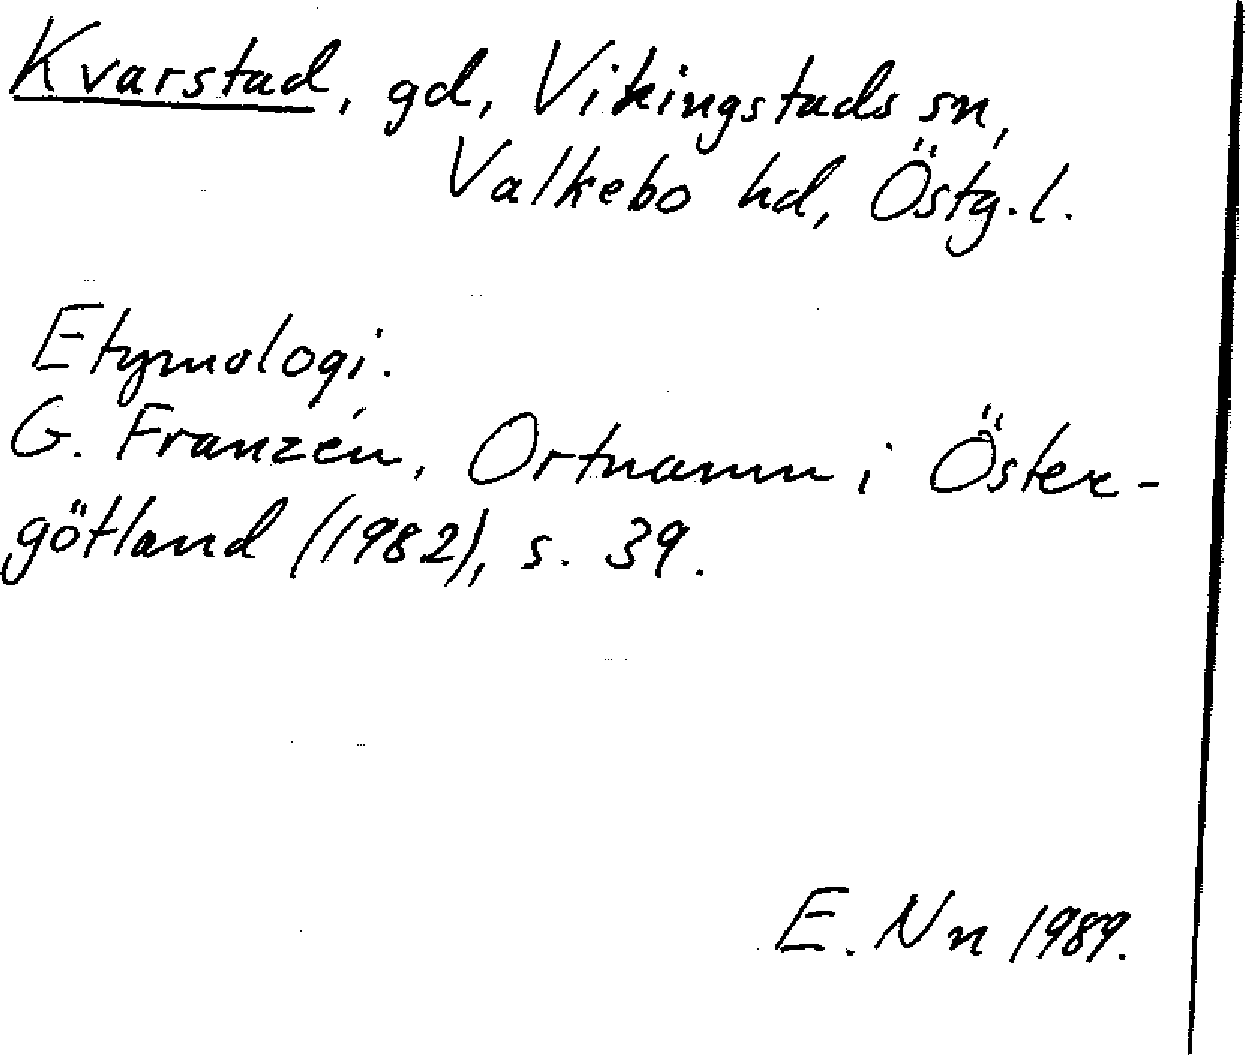 Kvarstad, gd, Vikingstads sn,
Valkebo hd, Östg.l.
Etymologi.
G. Franzén, Ortnamn i Öster-
götland (1982), s. 39.
E. Nn 1989.